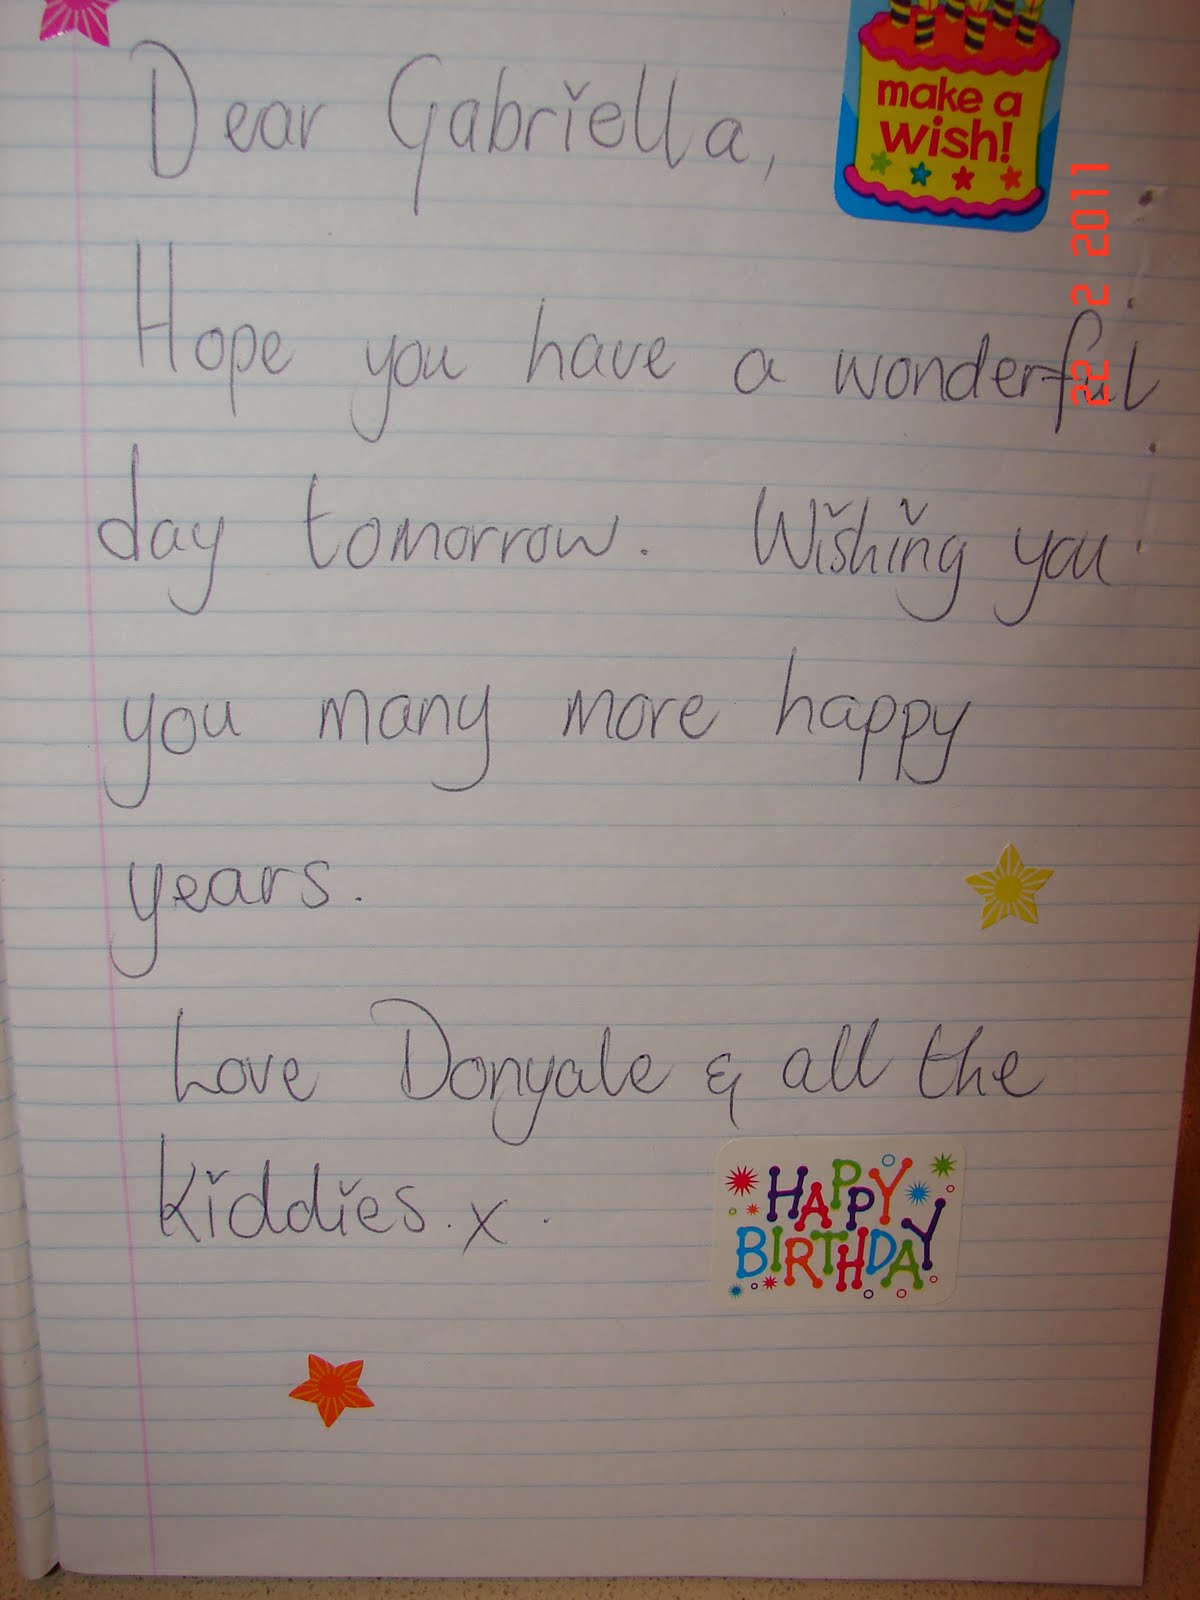 make a
wish!
Dear Gabriella,
22 2 2011
Hope you have a wonderful
day tomorrow. Wishing you
you many more happy
years.
Love Donyale & all the
Kiddies. x.
HAPPY
BIRTHDAY